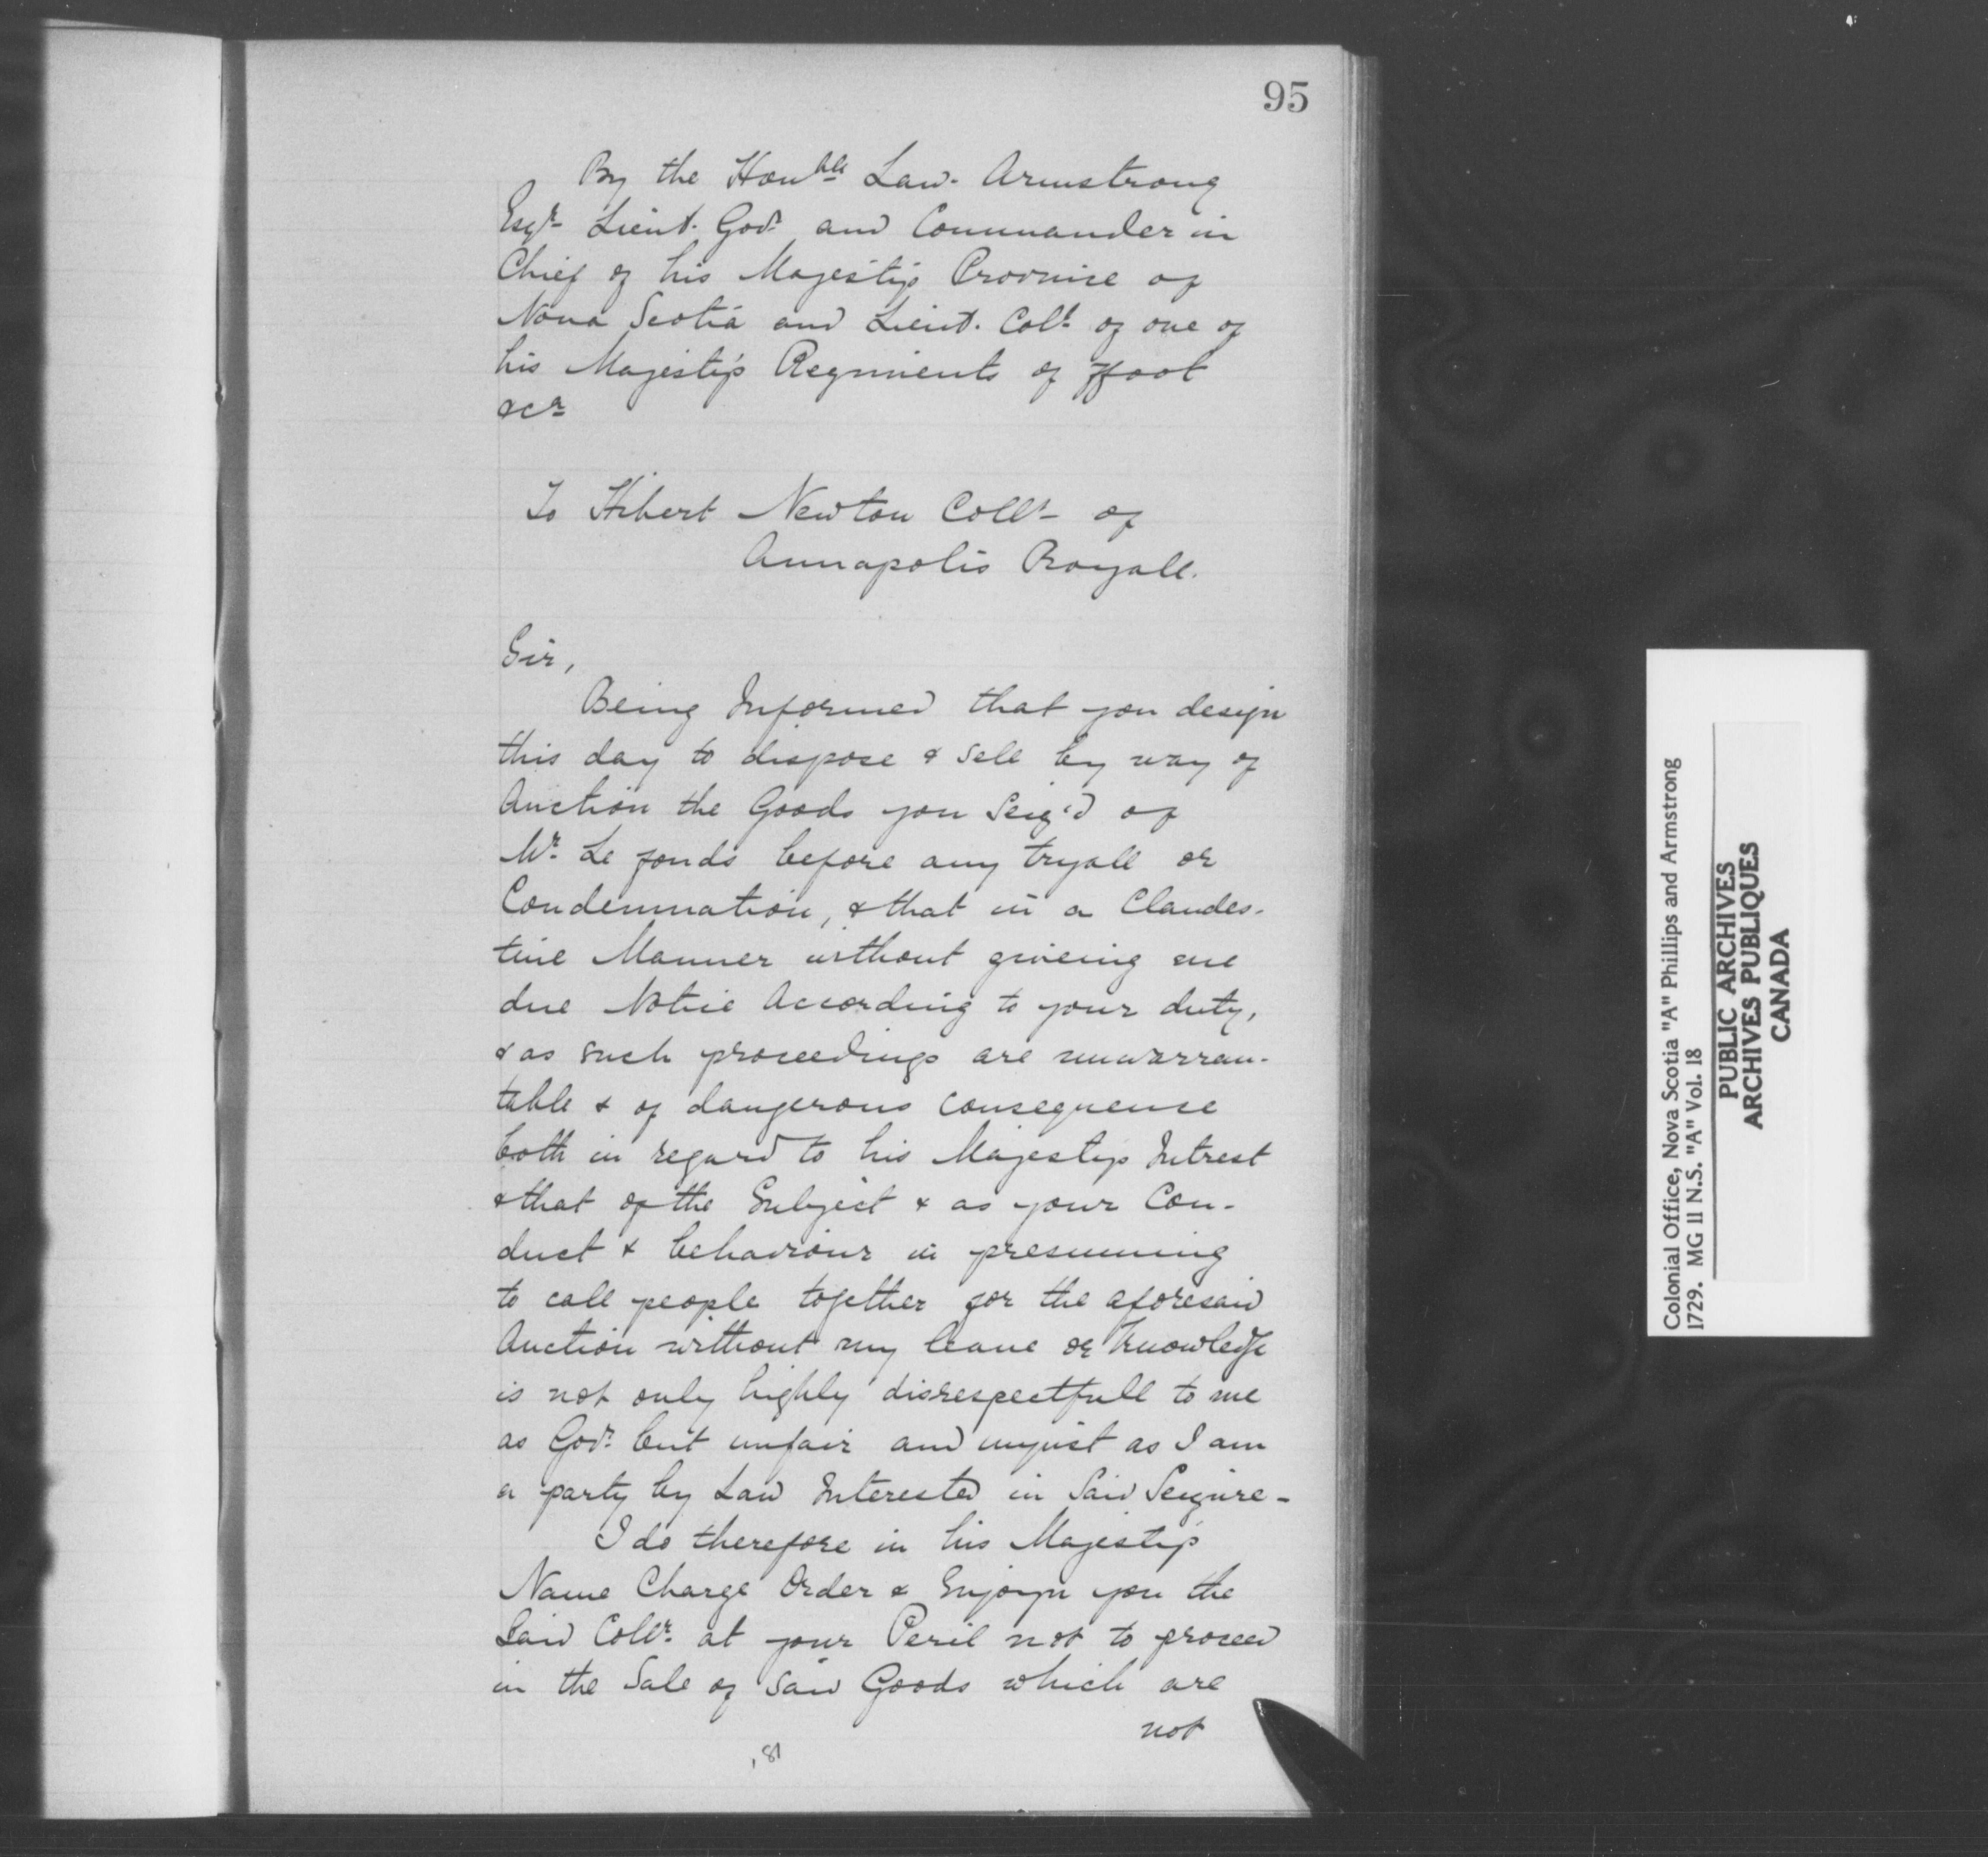 95
By the Honble Law. Armstrong
Esqr Lieut. Govr and Commander in
Chief of his Majesty's Province of
Nova Scotia and Lieut. Coll. of one of
his Majesty's Regiments of ffoot
&ca
To Hibert Newton Collr of
Annapolis Royall.
Sir,
Being Informed that you design
this day to dispose & sell by way of
Auction the Goods you Seiz'd of
Mr. Le fonds before any tryall or
Condemnation, & that in a Clandes-
tine Manner without giveing me
due Notice According to your duty,
& as such proceedings are unwarran-
table & of dangerous consequence
both in regard to his Majesty's Intrest
& that of the Subject & as your Con-
duct & behaviour in presuming
to call people together for the aforesaid
Auction without my leave or knowledge
is not only highly disrespectfull to me
as Govr. but unfair and unjust as I am
a party by Law Interested in Said Seizure -
I do therefore in his Majesty's
Name Charge Order & Enjoyn you the
Said Collr. at your Peril not to proceed
in the Sale of said Goods which are
not
18
Colonial Office, Nova Scotia "A" Phillips and Armstrong
1729. MG 11 N.S. "A" Vol. 18
PUBLIC ARCHIVES
ARCHIVES PUBLIQUES
CANADA